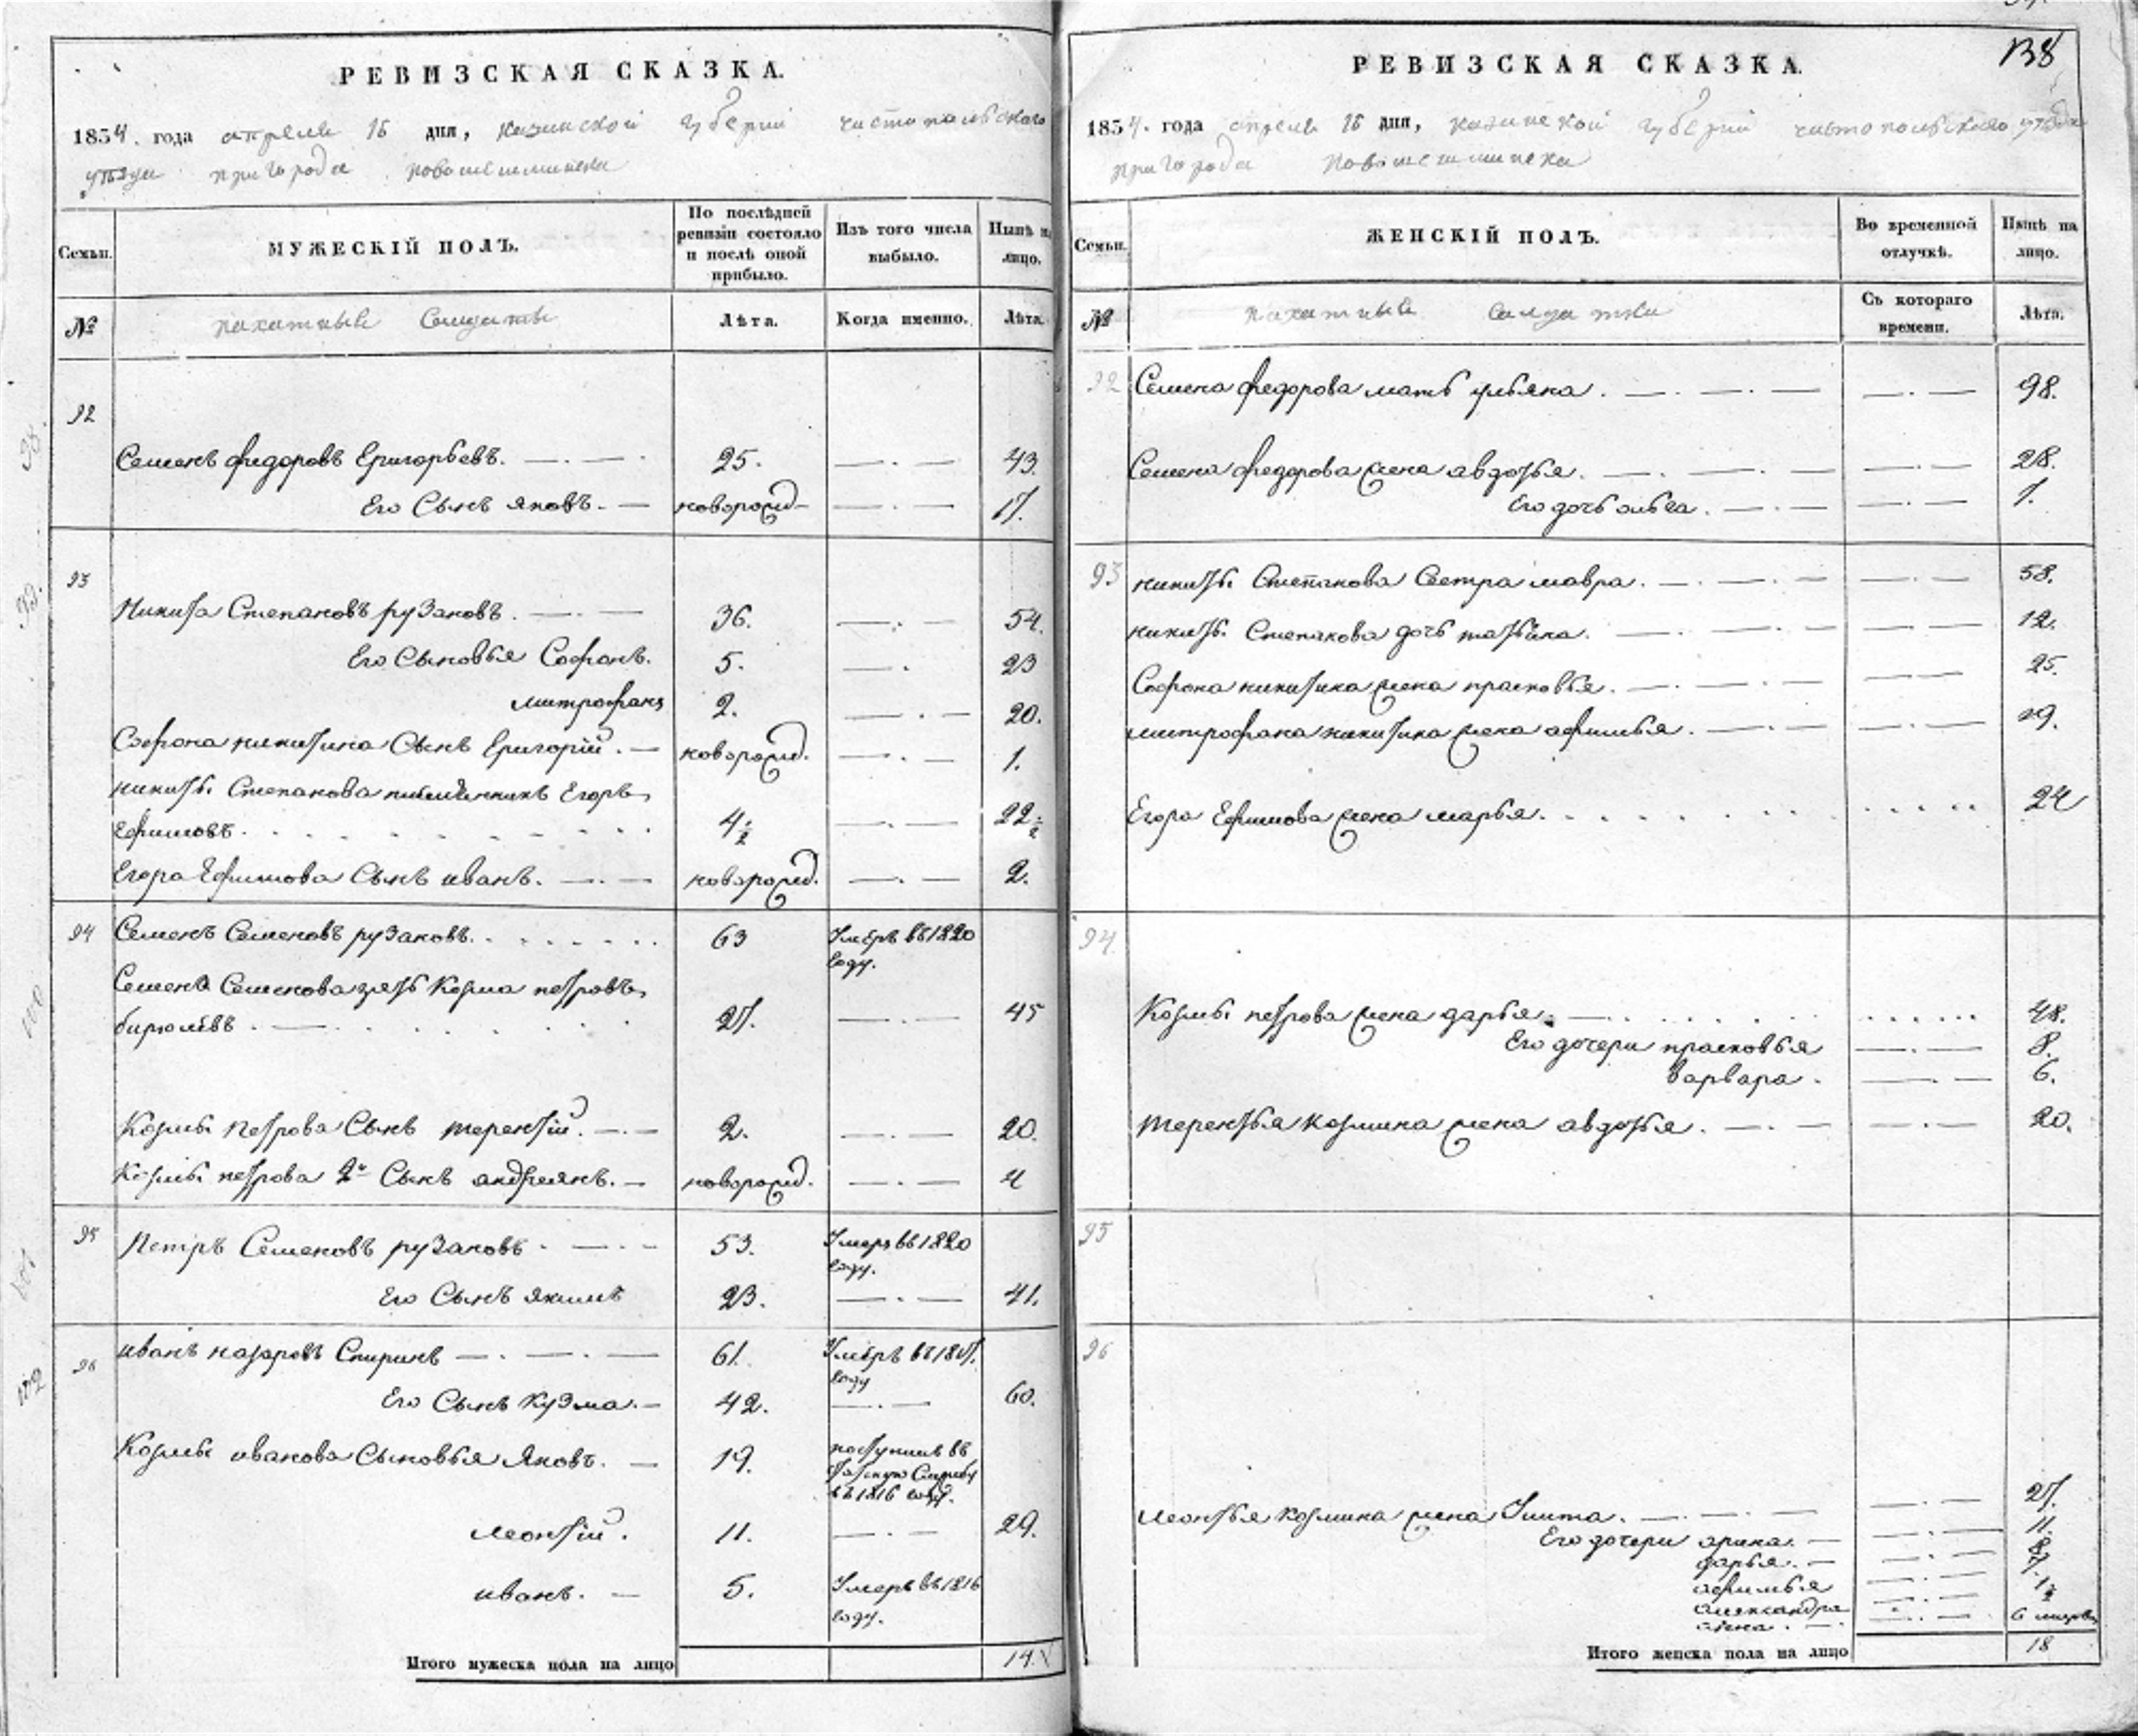 РЕВИЗСКАЯ СКАЗКА.
1834. года апреля 15 дня, казанской губернии чистопольскаго
уѣзда пригорода новошешминска
Семьи.
МУЖЕСКІЙ ПОЛЪ.
По послѣдней
ревизіи состояло
и послѣ оной
прибыло.
Изъ того числа
выбыло.
Нынѣ на
лицо.
№
пахатные Солдаты
Лѣта.
Когда именно.
Лѣта.
92
Семенъ федоровъ Григорьевъ. 25. 43.
Его Сынъ яковъ. новорожд 17.
93
Никита Степановъ рузановъ. 36. 54.
Его Сыновья Софонъ. 5. 23
митрофанъ 2. 20.
Софона никитина Сынъ Григорій. новорожд. 1.
никиты Степанова племянникъ Егоръ
Ефимовъ. 4½ 22½
Егора Ефимова Сынъ иванъ. новорожд. 2.
94 Семенъ Семеновъ рузановъ. 63 Умеръ въ 1820
году.
Семена Семенова зять Козма петровъ
бирюлевъ. 27. 45
Козмы петрова Сынъ терентій. 2. 20.
Козмы петрова 2й Сынъ андреянъ. новорожд. 4
95 Петръ Семеновъ рузановъ. 53. Умеръ въ 1820
году.
Его Сынъ якимъ 23. 41.
96 иванъ назаровъ Спиринъ 61. Умеръ въ 1817.
году
Его Сынъ Кузма. 42. 60.
Козмы иванова Сыновья Яковъ. 19. поступилъ въ
Службу
въ 1816 году.
леонтій. 11. 29.
иванъ. 5. Умеръ въ 1816
году.
Итого мужеска пола на лицо 14.
138
РЕВИЗСКАЯ СКАЗКА.
1834. года апреля 15 дня, казанской губернии чистопольскаго уѣзда
пригорода новошешминска
Семьи.
ЖЕНСКІЙ ПОЛЪ.
Во временной
отлучкѣ.
Нынѣ на
лицо.
№
пахатные солдатки
Съ котораго
времени.
Лѣта.
92 Семена федорова мать ульяна. 98.
Семена федорова жена авдотья. 28.
Его дочь ольга. 1.
93 никиты Степанова Сестра мавра. 58.
никиты Степанова дочь татьяна. 12.
Софона никитина жена прасковья. 25.
митрофана никитина жена афимья. 19.
Егора Ефимова жена марья. 24
94.
Козмы петрова жена дарья. 48.
Его дочери прасковья 8.
варвара. 6.
терентья Козмина жена авдотья. 20.
95
96
леонтья Козмина жена Улита. 27.
Его дочери арина. 11.
дарья. 8.
афимья 7.
александра 1½
Итого женска пола на лицо 18